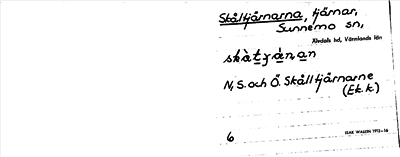 Skåltjärnarna, tjärnar,
Sunnemo sn,
Älvdals hd, Värmlands län
N, S. och Ö. Skålltjärnarne
(Ek. k.)
6
ISAK WALLIN 1912-16